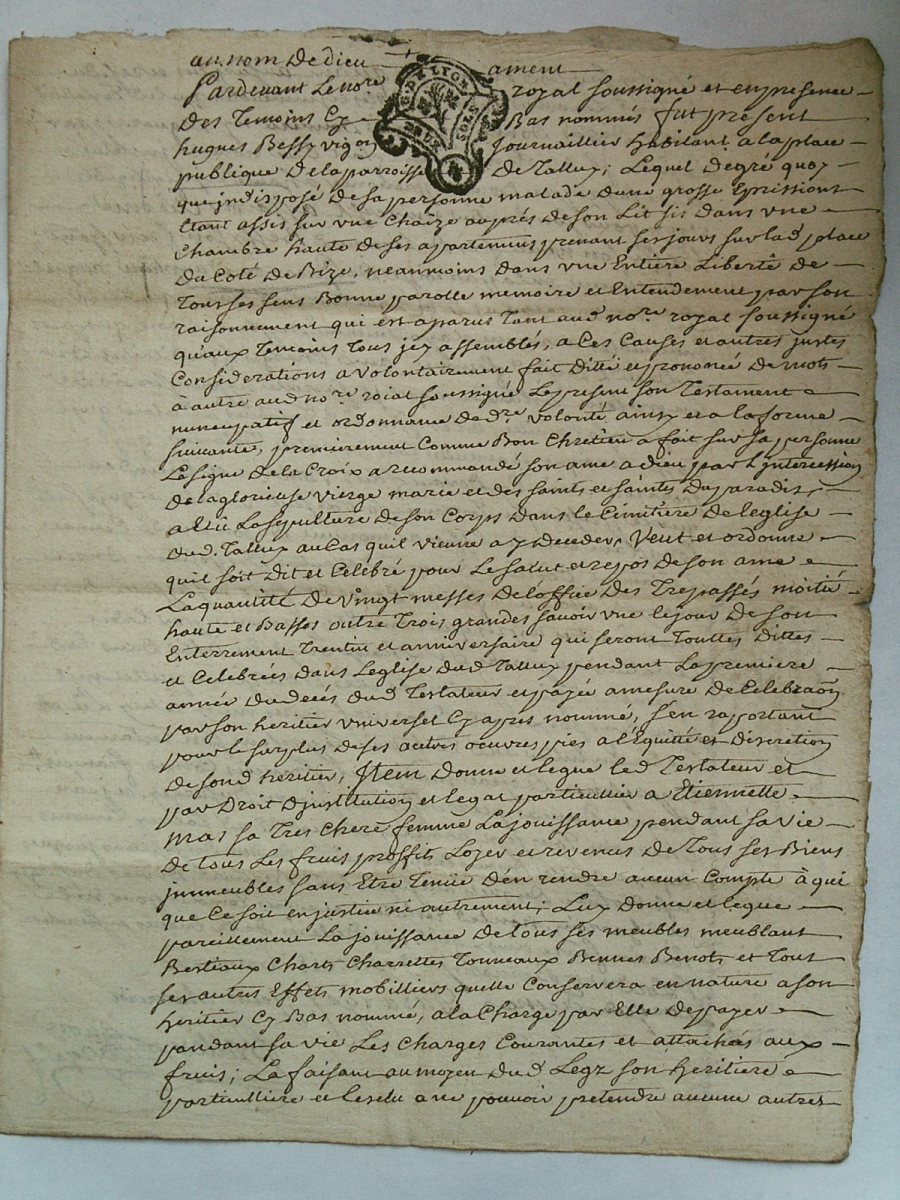 au nom de dieu ament
Pardevant Le no.re royal soussigné et en presence
Des Temoins Cy Bas nommés fut présent
hugues Bessy vigon Journaillier habitant a la place
publique De la parroisse De Tallux; Lequel De gré quoy
que indisposé de sa personne malade dune grosse
Etant assis sur vne Chaize auprés de son Lit sis dans vne
Chambre haute de ses apartemens prenant ses jours sur lad place
Du Coté de Bize, neanmoins dans vne Entiere Liberté de
Tous ses sens Bonne parolle memoire et Entendement par son
raisonnement qui est aparus tant aud no.re royal soussigné
qu'aux Temoins Tous jcy assemblés, a Ces Causes et autres justes
Considerations a volontairement fait Ditté et prononcé de mots
à autre aud no.re roial soussigné Le present son Testament
nuncupatif et ordonnance de d.re volonté ainsy et a la forme
suivante, premierement Comme Bon Chretien a fait sur sa personne
Le signe De la Croix a recommandé son ame a dieu par L'intercession
de la glorieuse vierge marie et des saints et saintes du paradis,
a Elü La sepulture de son Corps dans le Cimitiere de leglise
Dud. Tallux au Cas quil vienne a y Deceder, Veut et ordonne
quil soit Dit et Celebré pour Le salut et repos De son ame
La quantité De vingt messes De loffice Des Trepassés moitié
haute et Basses outre Trois grandes savoir vne le jour de son
Enterrement Trentin et anniversaire qui seront Touttes Dittes
et Celebrées dans Leglise dud Tallux pendant La premiere
année du decés dud Testateur et payée a mesure de Celebraõn
par son heritier vniversel Cy apres nommé, s'en raportant
pour le surplus de ses autres oeuvres pies a l'Equitté et discretion
De sond heritier, Jtem Donne et legue led Testateur et
par Droit Djnstitution et legat particullier a Etiennette
Mas sa Tres chere femme La jouissance pendant sa vie
De tous Les fruis proffits Loyer et revenus De Tous ses Biens
jmmeubles sans Etre Tenüe D'en rendre aucun Compte à qui
que Ce soit en justice ni autrement; Luy Donne et legue
pareillement La jouissance De tous ses meubles meublant
Bestiaux Charts Charrettes Tonneaux Bennes Benots et Tout
ses autres Effets mobilliers quelle Conservera en nature a son
heritier Cy Bas nommé, a la Charge par Elle De payer
pandant sa vie Les Charges Courantes et attachées aux
fruis; La faisant au moyen dud Legz son heritiere
particulliere et a ne pouvoir pretendre aucune autres